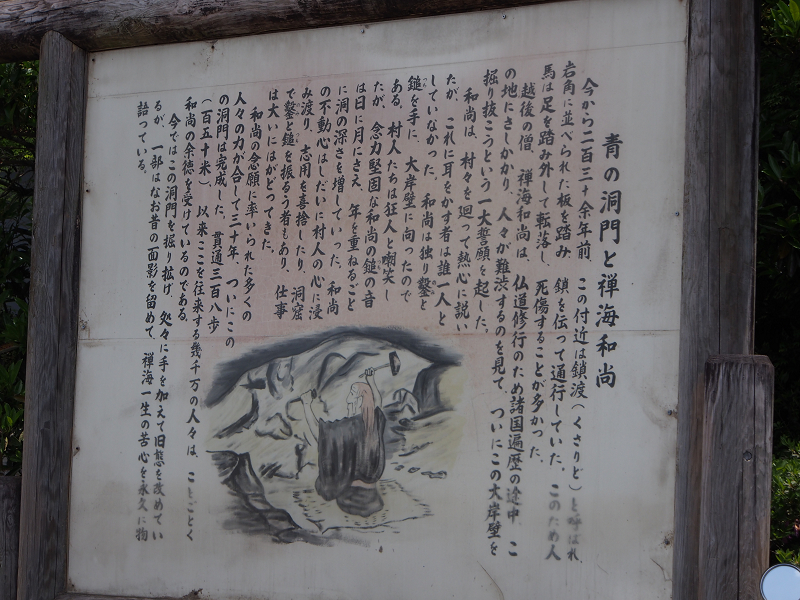 青の洞門と禅海和尚
今から二百三十余年前、この付近は鎖渡(くさりど)と呼ばれ、
岩角に並べられた板を踏み、鎖を伝って通行していた。このため人
馬は足を踏み外して転落し、死傷することが多かった。
越後の僧、禅海和尚は、仏道修行のため諸国遍歴の途中、こ
の地にさしかかり、人々が難渋するのを見て、ついにこの大岸壁を
掘り抜こうという一大誓願を起した。
和尚は、村々を廻って熱心に説い
たが、これに耳をかす者は誰一人と
していなかった。和尚は独り鑿と
鎚を手に、大岸壁に向ったので
ある。村人たちは狂人と嘲笑し
たが、念力堅固な和尚の鎚の音
は日に月にさえ、年を重ねるごと
に洞の深さを増していった。和尚
の不動心はしだいに村人の心に浸
み渡り、志用を喜捨したり、洞窟
で鑿と鎚を振るう者もあり、仕事
は大いにはがどってきた。
和尚の念願に率いられた多くの
人々の力が合して三十年、ついにこの
の洞門は完成した。貫通三百八歩
(一百五十米)、以来ここを往来する幾千万の人々は、ことごとく
和尚の余徳を受けているのである。
今ではこの洞門を掘り拡げ、処々に手を加えて旧態を改めてい
るが、一部はなお昔の面影を留めて、禅海一生の苦心を永久に物
語っている。